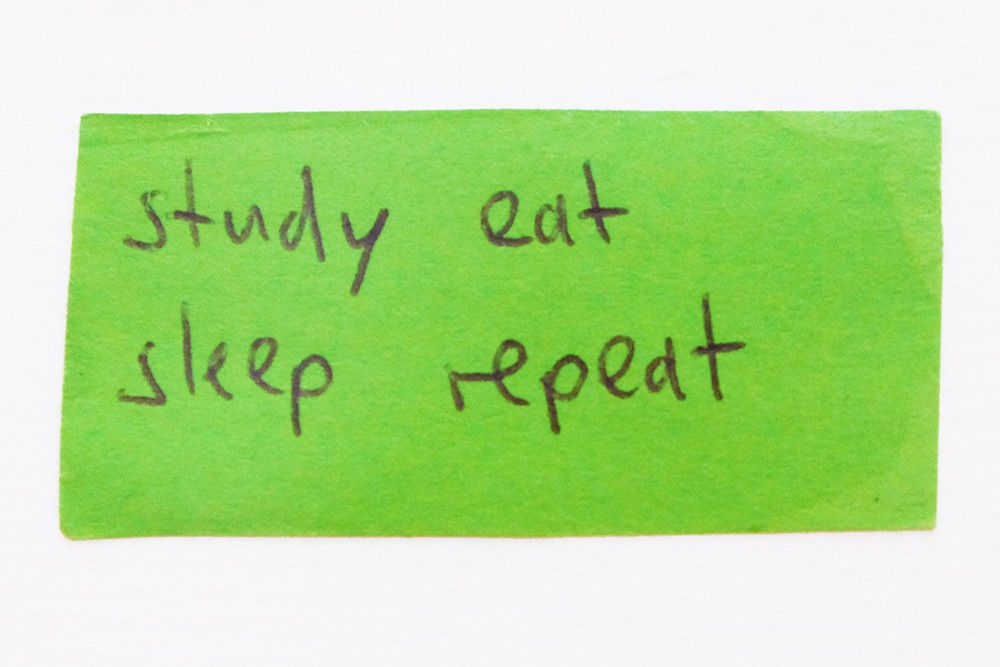 study eat
sleep repeat